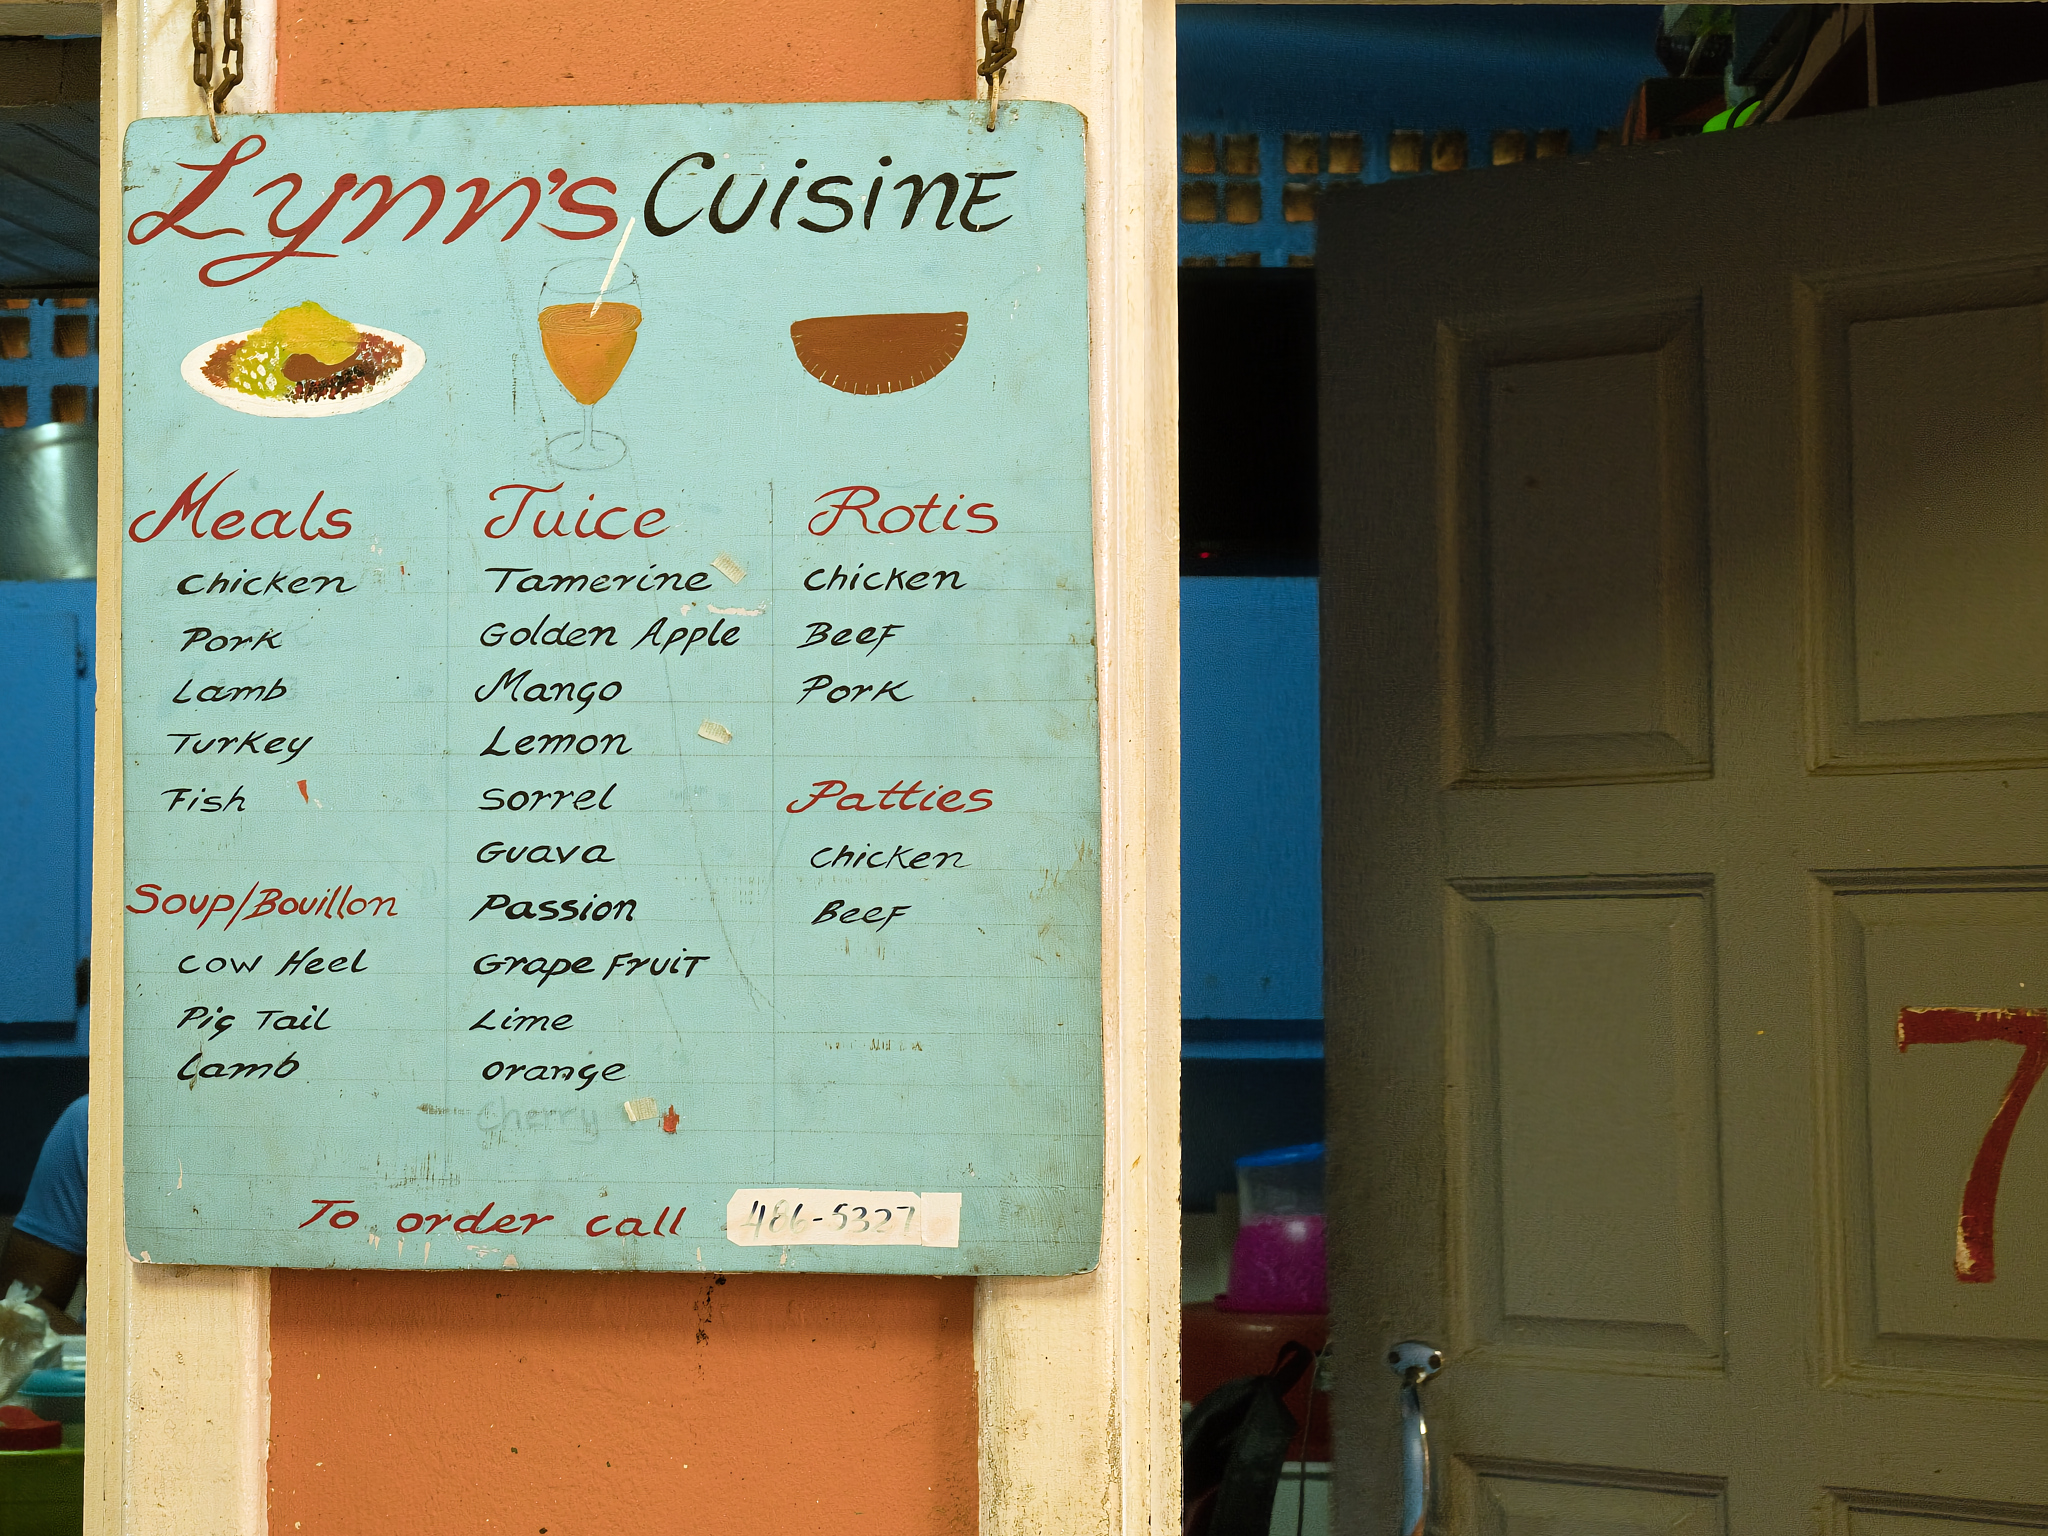 Lynn's Cuisine
Meals
Chicken
Pork
Lamb
Turkey
Fish
Soup/Bouillon
Cow Heel
Pig Tail
Lamb
Juice
Tamerine
Golden Apple
Mango
Lemon
Sorrel
Guava
Passion
Grape Fruit
Lime
Orange
Cherry
Rotis
Chicken
Beef
Pork
Patties
Chicken
Beef
To order call 486-5327
7